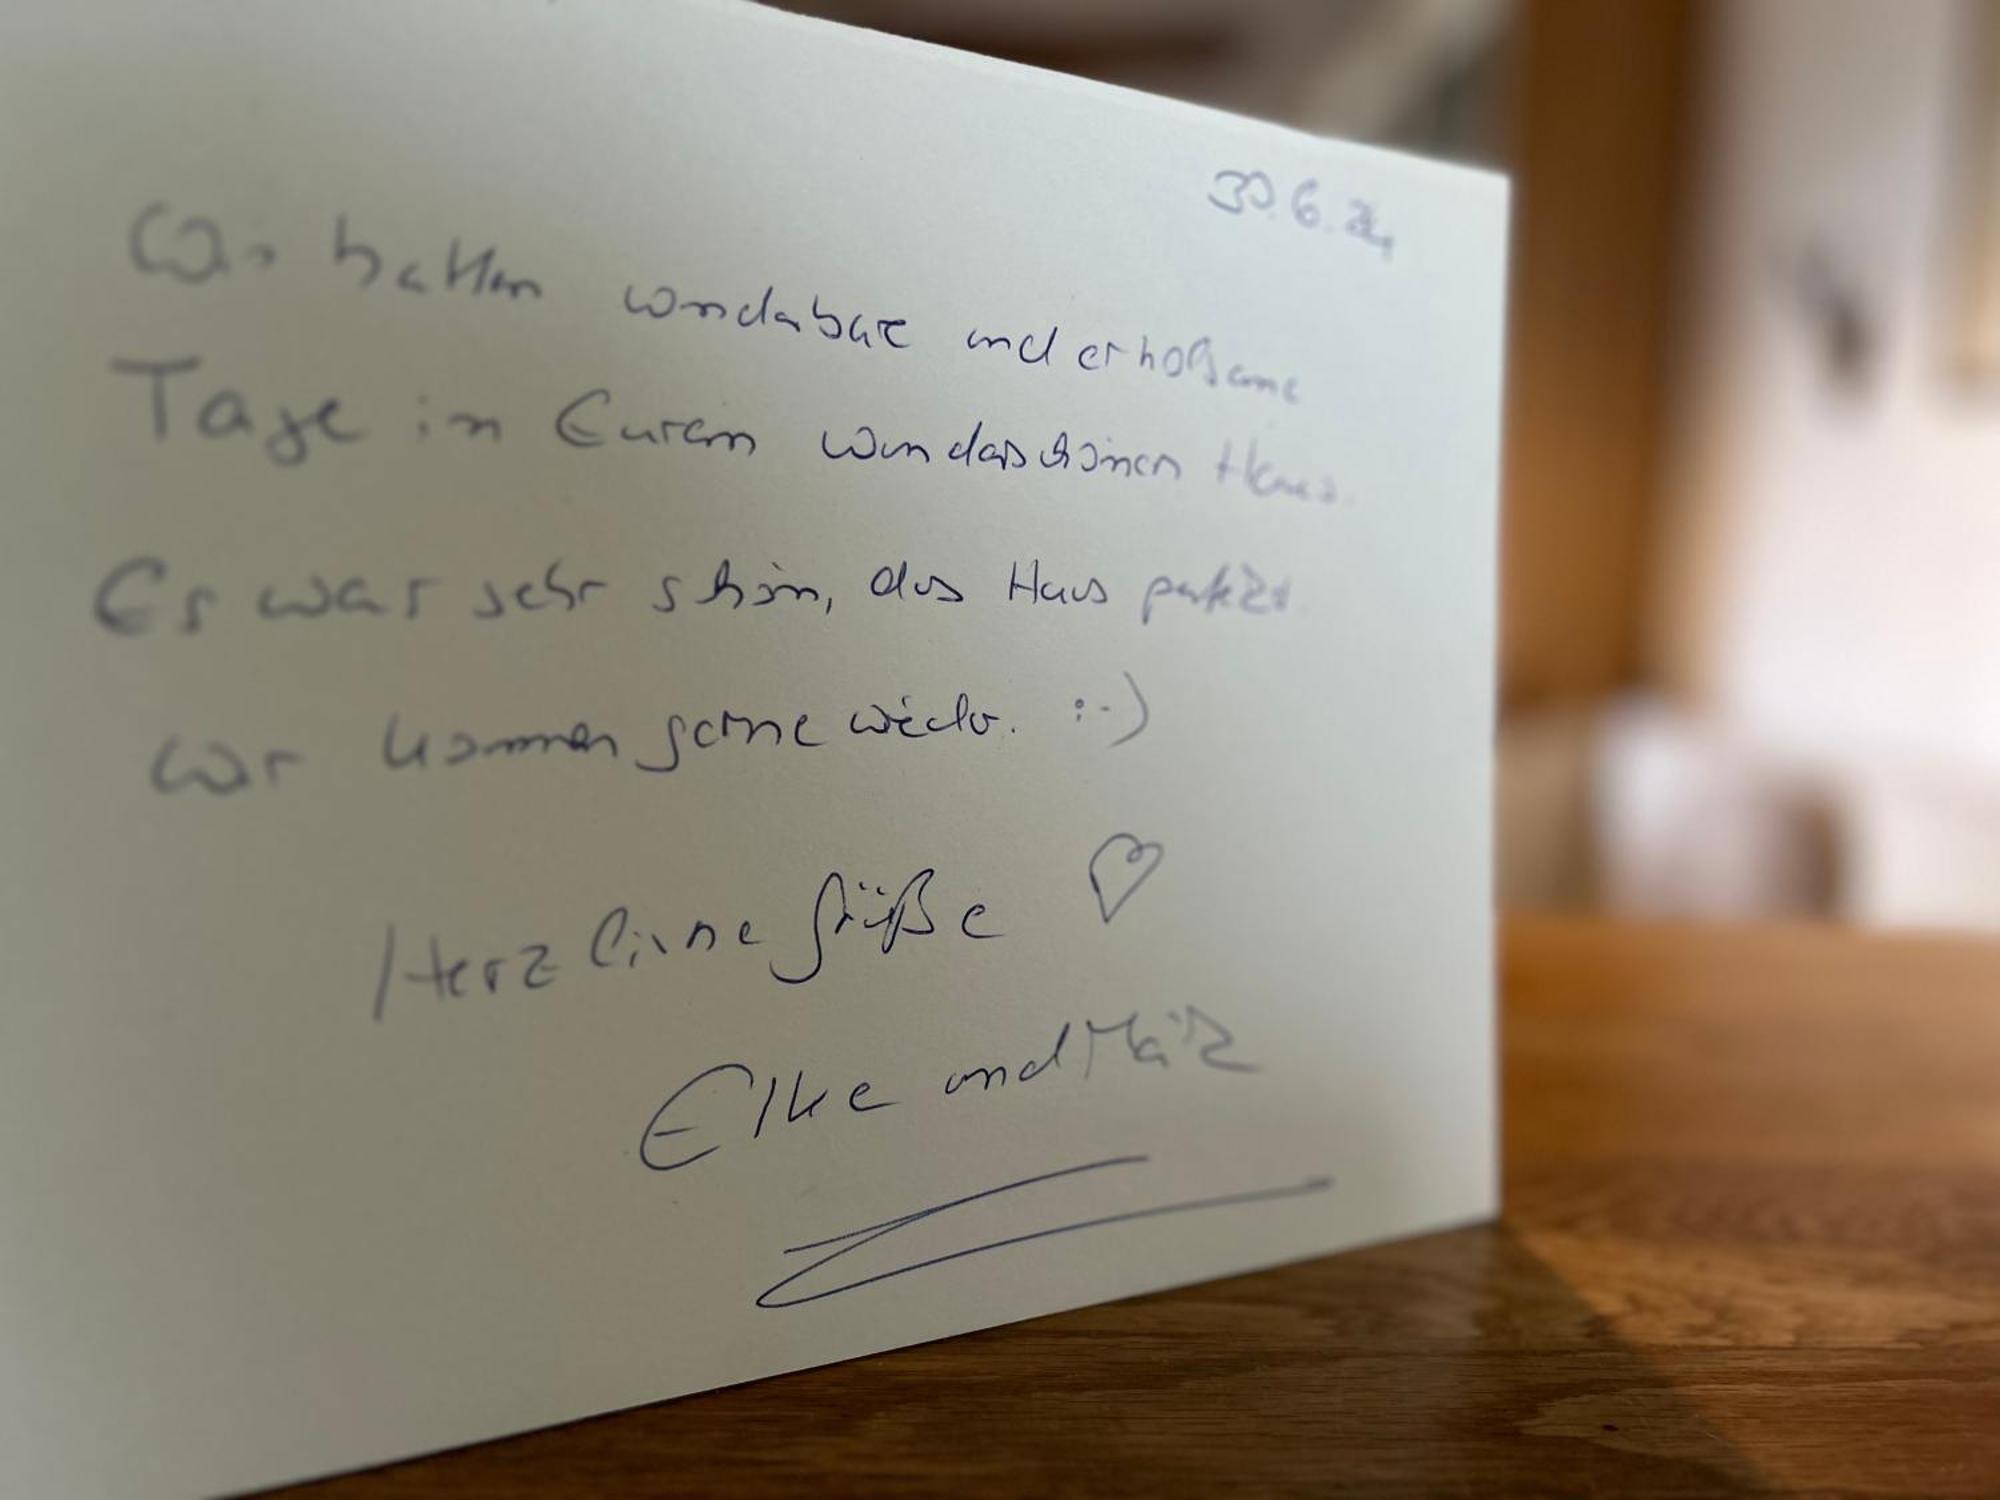 30.6.24
Wir hatten wunderbare und erholsame
Tage in Eurem wunderschönen Haus.
Es war sehr schön, das Haus perfekt.
Wir kommen gerne wieder. :-)
Herzliche Grüße ♡
Elke und